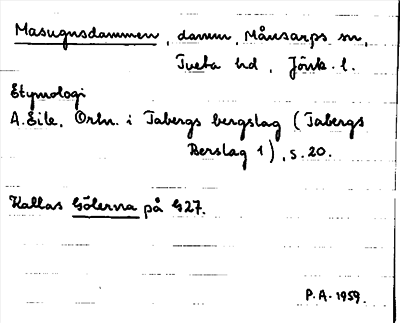 Masugnsdammen, damm, Månsarps sn,
Tveta hd, Jönk. l.
Etymologi
A. Eile. Ortn. i Tabergs bergslag (Tabergs
Berslag 1), s. 20.
Kallas Gölerna på G27.
P.A. 1959.